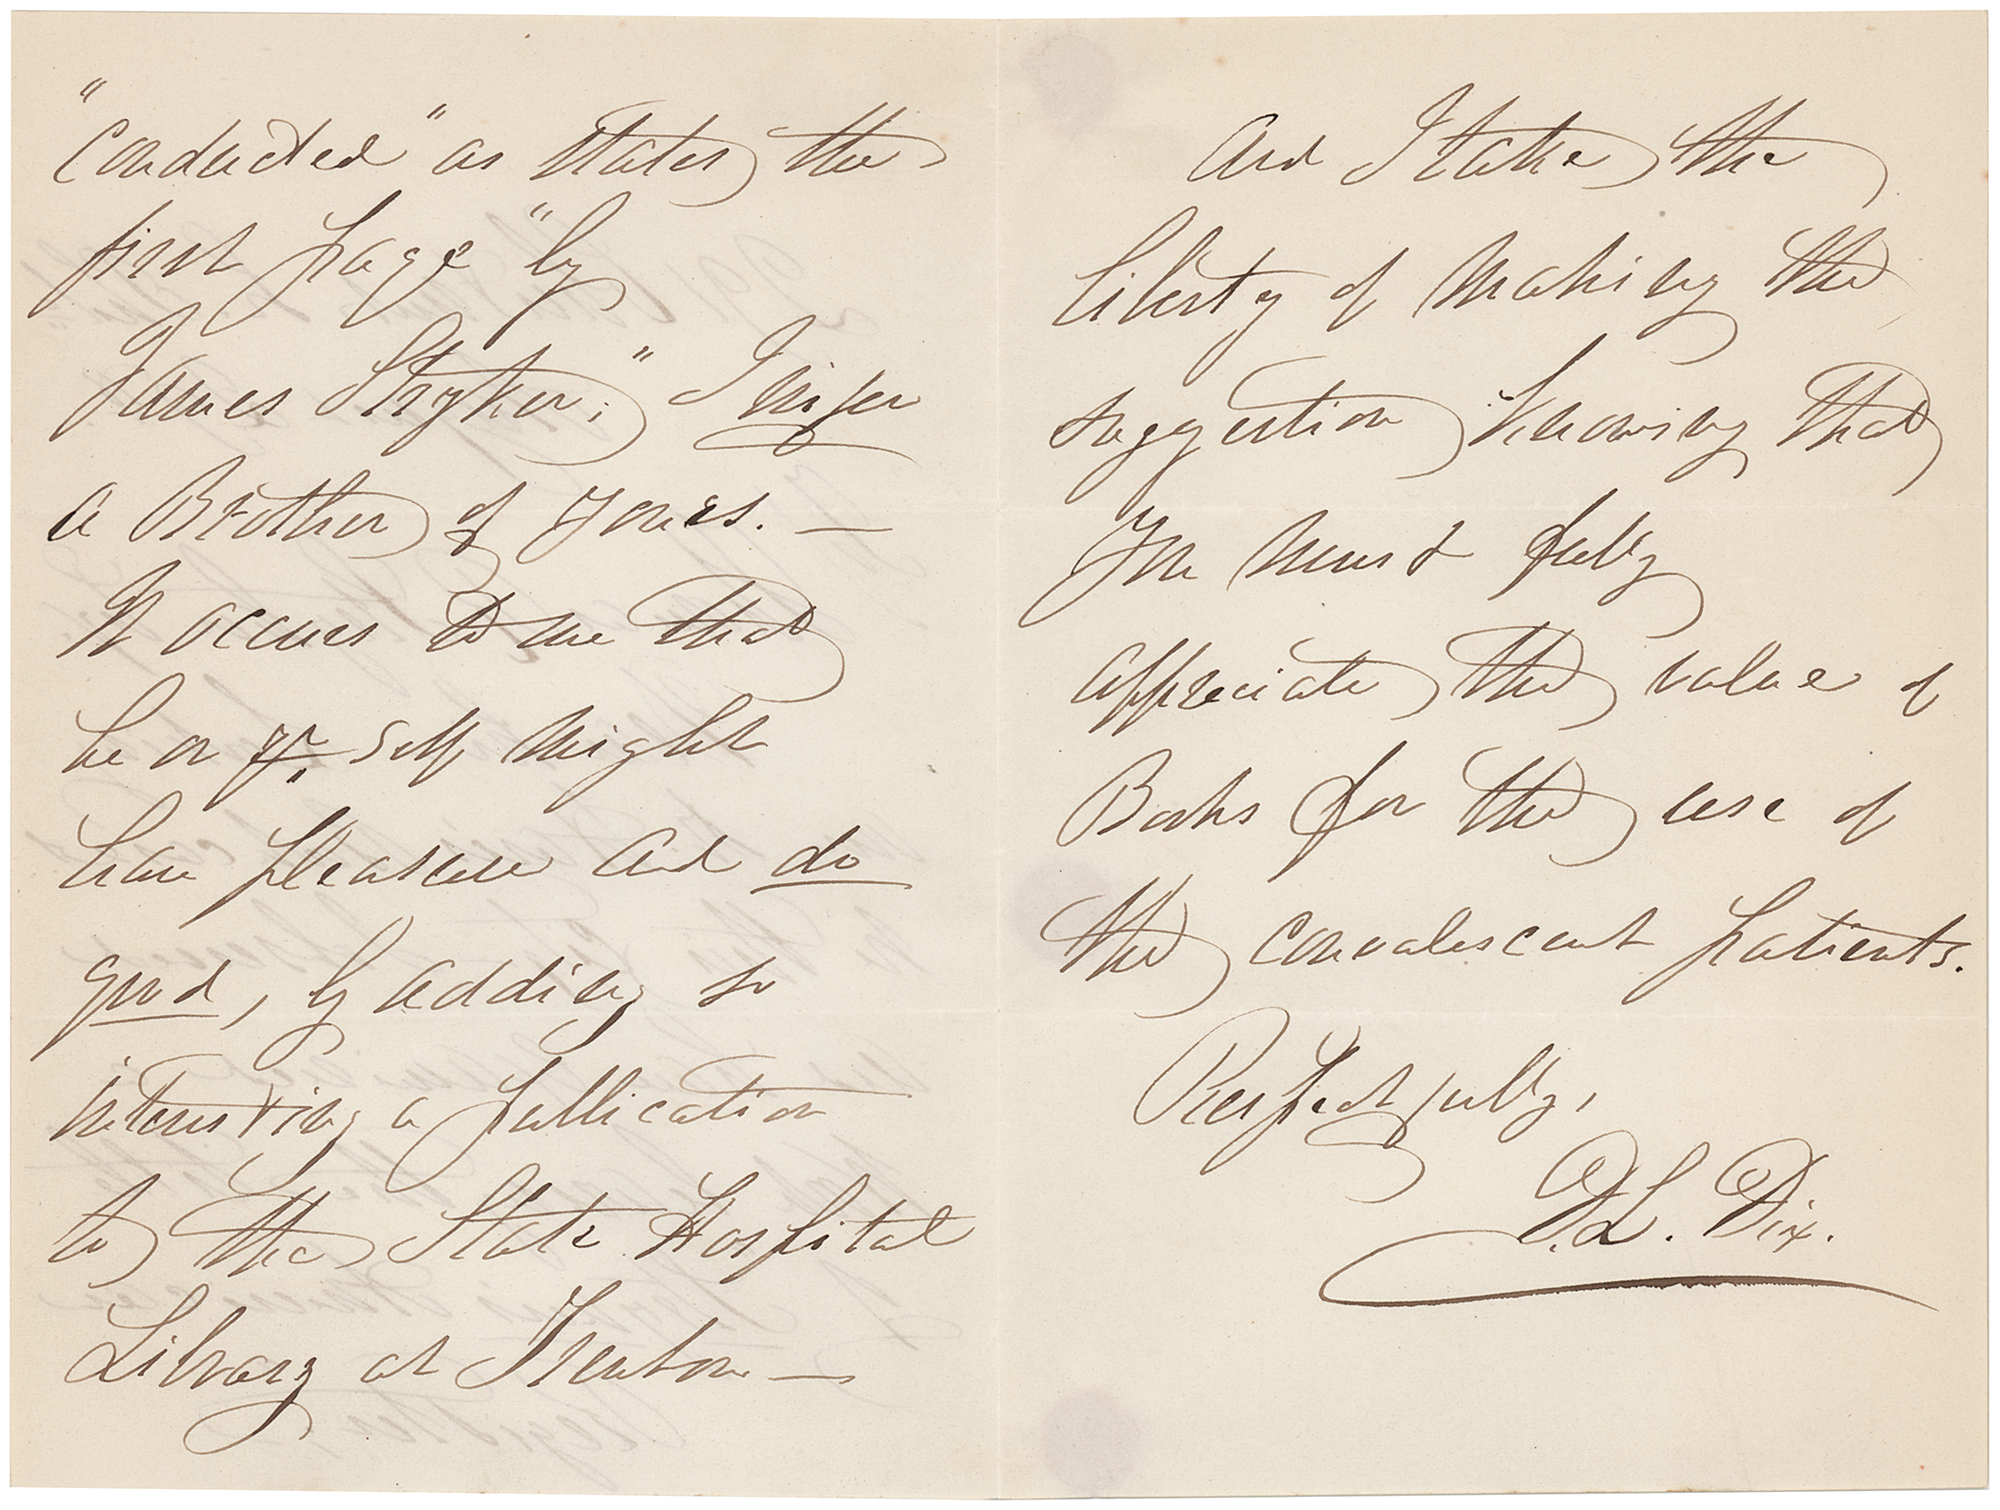 "conducted" as states the
first page "by
James Stryker;" I infer
a Brother of yours. —
It occurs to me that
he or yr. self might
have pleasure and do
good, by adding so
interesting a publication
to the State Hospital
Library at Trenton —
and I take the
liberty of making the
suggestion knowing that
You must fully
appreciate the value of
Books for the use of
the convalescent patients.
Respectfully,
D.L. Dix.